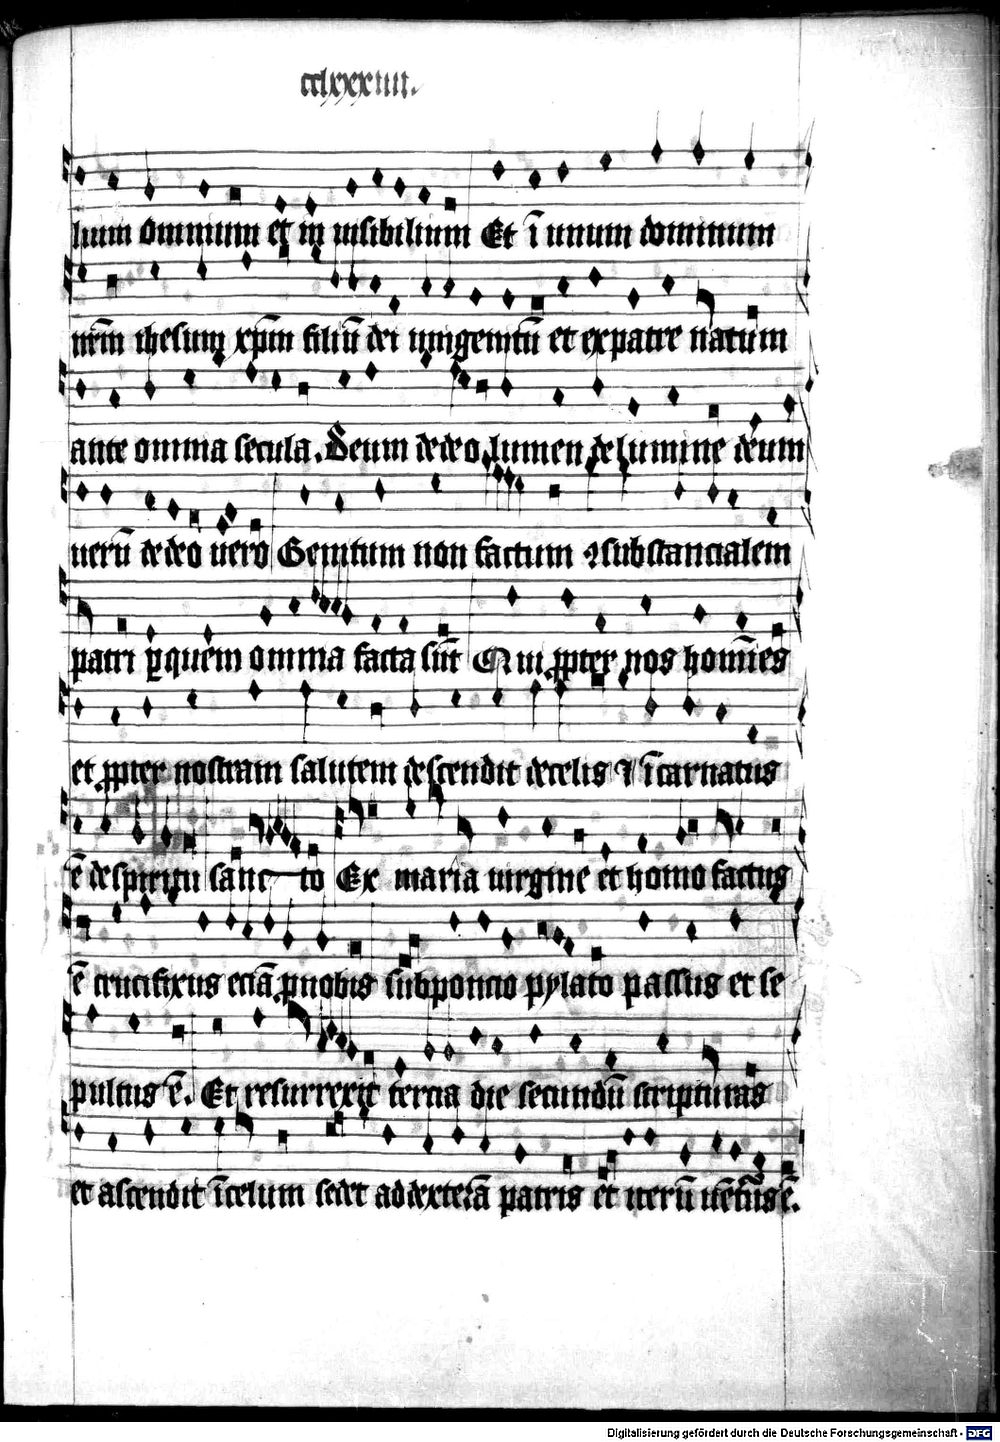 cclxxxiiii.
lium omnium et in uisibilium Et ī unum dominum
nr̄m ihesum xp̄m filiū dei unigenitū et ex patre natum
ante omnia secula. Deum de deo lumen de lumine deum
uerū de deo uero Genitum non factum ꝯsubstancialem
patri ꝑ quem omnia facta sūt Qui ꝓpter nos homīes
et ꝓpter nostram salutem descendit de celis ⁊ īcarnatus
ē de spiritu sancto Ex maria uirgine et homo factus
ē crucifixus eciā ꝓ nobis sub poncio pylato passus et se
pultus ē. Et resurrexit tercia die secundū scripturas
et ascendit ī celum sedet ad dexterā patris et iterū uēturus ē.
Digitalisierung gefördert durch die Deutsche Forschungsgemeinschaft - DFG